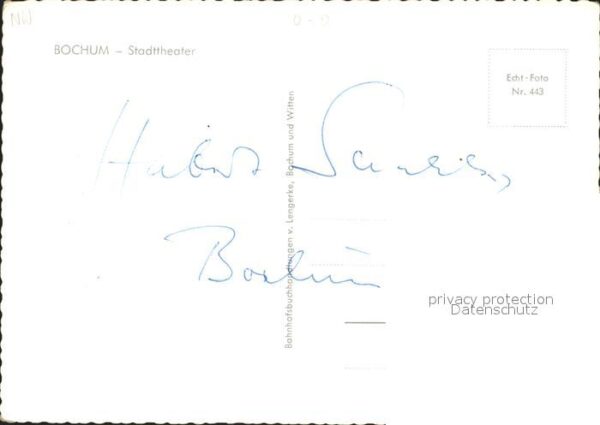 NW
BOCHUM – Stadttheater
Echt-Foto
Nr. 443
Bahnhofsbuchhandlungen v. Lengerke, Bochum und Witten
Bochum
privacy protection
Datenschutz